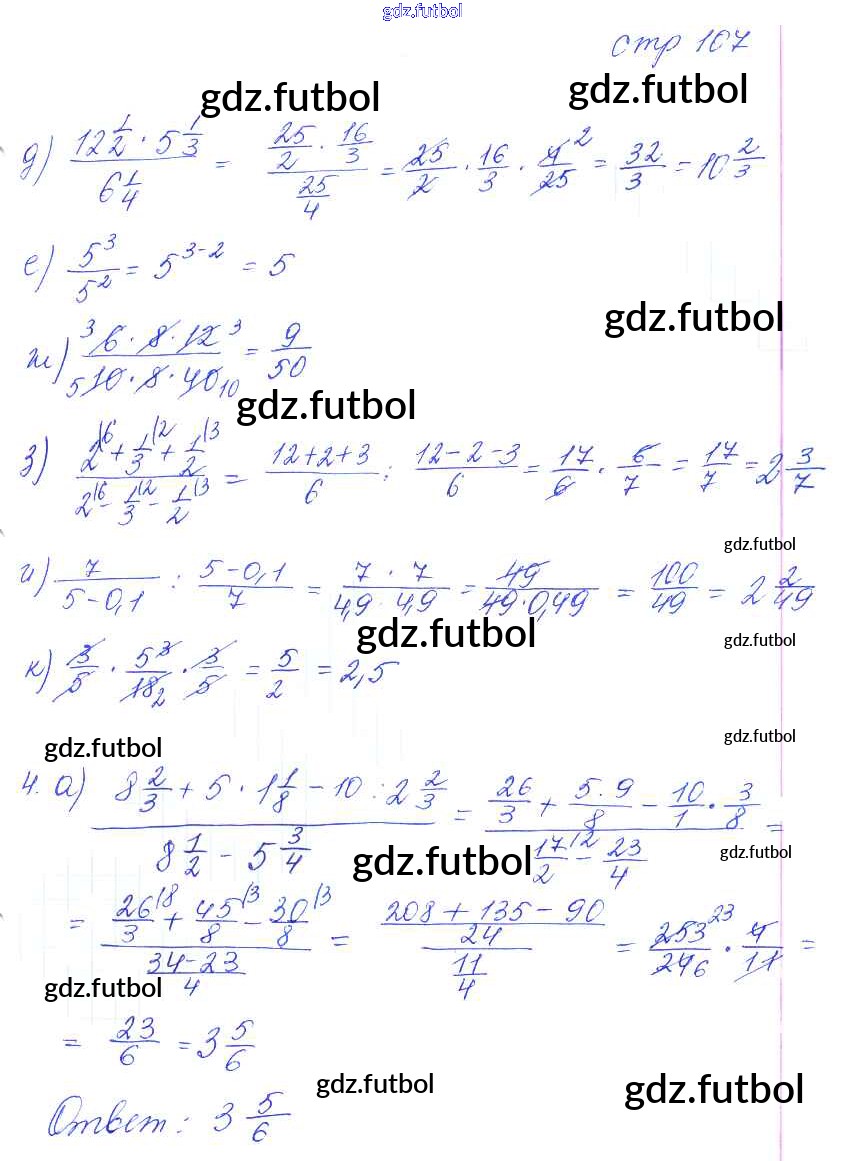 gdz.futbol
стр 107
gdz.futbol gdz.futbol
д) (12 1/2 · 5 1/3)/(6 1/4) = (25/2 · 16/3)/(25/4) = 25/2 · 16/3 · 4/25 2 = 32/3 = 10 2/3
е) 5³/5² = 5³⁻² = 5
gdz.futbol
ж) (3 6 · 8 · 12 3)/(5 10 · 8 · 40 10) = 9/50
gdz.futbol
з) (2|6 + 1/3|2 + 1/2|3)/(2|6 - 1/3|2 - 1/2|3) = (12+2+3)/6 : (12-2-3)/6 = 17/6 · 6/7 = 17/7 = 2 3/7
gdz.futbol
и) 7/(5-0,1) : (5-0,1)/7 = (7 · 7)/(4,9 · 4,9) = 49/(49·0,49) = 100/49 = 2 2/49
gdz.futbol gdz.futbol
к) 3/5 · 5 3/18 2 · 3/5 = 5/2 = 2,5
gdz.futbol gdz.futbol
4. а) (8 2/3 + 5 · 1 1/8 - 10 : 2 2/3)/(8 1/2 - 5 3/4) = (26/3 + (5·9)/8 - 10/1 · 3/8)/(17/2|2 - 23/4) =
gdz.futbol gdz.futbol
= (26/3|8 + 45/8|3 - 30/8|3)/((34-23)/4) = ((208+135-90)/24)/(11/4) = 253 23/24 6 · 4/11 =
gdz.futbol
= 23/6 = 3 5/6
gdz.futbol gdz.futbol
Ответ: 3 5/6